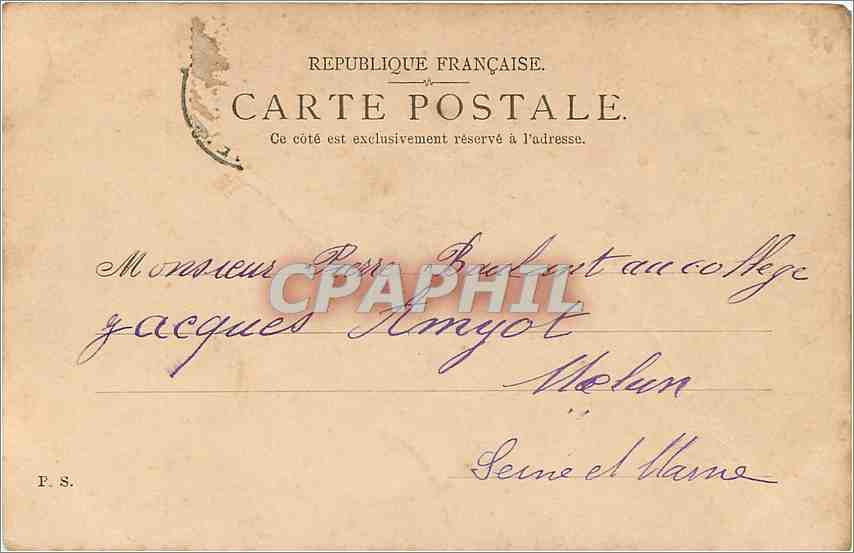 REPUBLIQUE FRANÇAISE.
CARTE POSTALE.
Ce côté est exclusivement réservé à l'adresse.
Monsieur Pierre au college
CPAPHIL
Jacques Amyot
Melun
Seine et Marne
P. S.